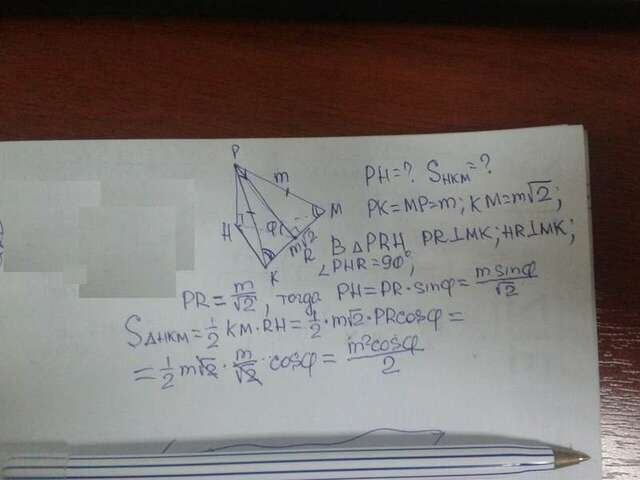 P
m
M
H
φ
m√2
R
K
PH=? S_HKM=?
PK=MP=m; KM=m√2;
В ΔPRH PR⊥MK; HR⊥MK;
∠PHR=90°;
PR=m/√2, тогда PH=PR·sinφ=m sinφ/√2
S_ΔHKM=1/2 KM·RH=1/2·m√2·PRcosφ=
=1/2 m√2·m/√2·cosφ=m²cosφ/2